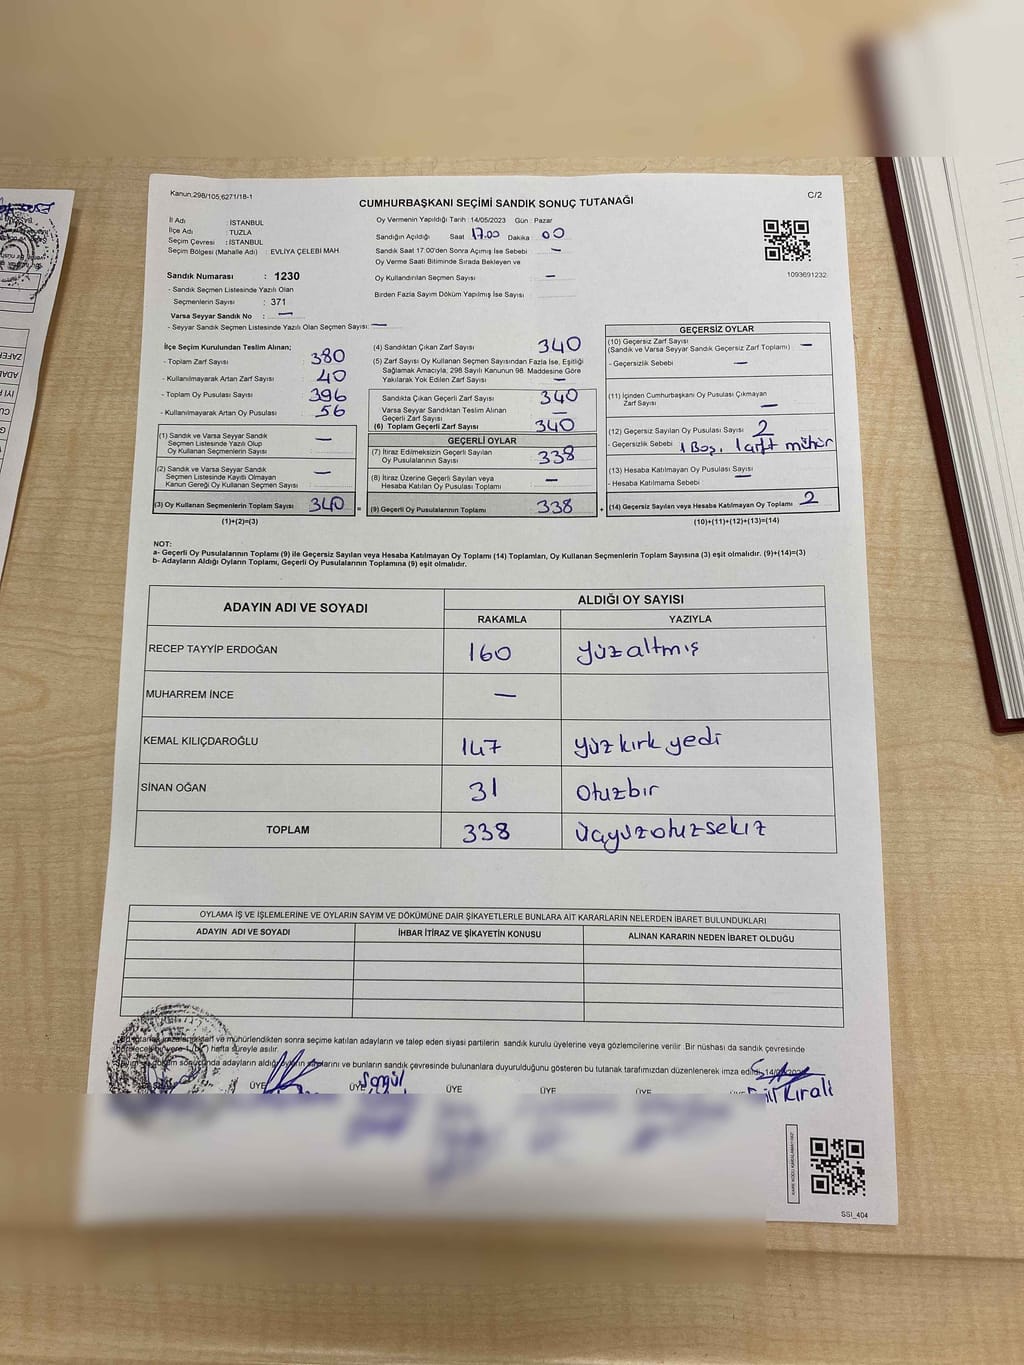 Kanun.298/105;6271/18-1
C/2
CUMHURBAŞKANI SEÇİMİ SANDIK SONUÇ TUTANAĞI
İl Adı : İSTANBUL
İlçe Adı : TUZLA
Seçim Çevresi : İSTANBUL
Seçim Bölgesi (Mahalle Adı) : EVLİYA ÇELEBİ MAH
Oy Vermenin Yapıldığı Tarih :14/05/2023 Gün : Pazar
Sandığın Açıldığı Saat 17.00 Dakika 00
Sandık Saat 17:00'den Sonra Açımış İse Sebebi —
Oy Verme Saati Bitiminde Sırada Bekleyen ve
Oy Kullandırılan Seçmen Sayısı —
Birden Fazla Sayım Döküm Yapılmış İse Sayısı
1093691232
Sandık Numarası : 1230
- Sandık Seçmen Listesinde Yazılı Olan
Seçmenlerin Sayısı : 371
Varsa Seyyar Sandık No : —
- Seyyar Sandık Seçmen Listesinde Yazılı Olan Seçmen Sayısı: —
İlçe Seçim Kurulundan Teslim Alınan;
- Toplam Zarf Sayısı 380
- Kullanılmayarak Artan Zarf Sayısı 40
- Toplam Oy Pusulası Sayısı 396
- Kullanılmayarak Artan Oy Pusulası 56
(1) Sandık ve Varsa Seyyar Sandık
Seçmen Listesinde Yazılı Olup
Oy Kullanan Seçmenlerin Sayısı —
(2) Sandık ve Varsa Seyyar Sandık
Seçmen Listesinde Kayıtlı Olmayan
Kanun Gereği Oy Kullanan Seçmen Sayısı —
(3) Oy Kullanan Seçmenlerin Toplam Sayısı 340 =
(1)+(2)=(3)
(4) Sandıktan Çıkan Zarf Sayısı 340
(5) Zarf Sayısı Oy Kullanan Seçmen Sayısından Fazla İse, Eşitliği
Sağlamak Amacıyla; 298 Sayılı Kanunun 98. Maddesine Göre
Yakılarak Yok Edilen Zarf Sayısı —
Sandıkta Çıkan Geçerli Zarf Sayısı 340
Varsa Seyyar Sandıktan Teslim Alınan
Geçerli Zarf Sayısı —
(6) Toplam Geçerli Zarf Sayısı 340
GEÇERLİ OYLAR
(7) İtiraz Edilmeksizin Geçerli Sayılan
Oy Pusulalarının Sayısı 338
(8) İtiraz Üzerine Geçerli Sayılan veya
Hesaba Katılan Oy Pusulası Toplamı —
(9) Geçerli Oy Pusulalarının Toplamı 338 +
GEÇERSİZ OYLAR
(10) Geçersiz Zarf Sayısı
(Sandık ve Varsa Seyyar Sandık Geçersiz Zarf Toplamı) —
- Geçersizlik Sebebi —
(11) İçinden Cumhurbaşkanı Oy Pusulası Çıkmayan
Zarf Sayısı —
(12) Geçersiz Sayılan Oy Pusulası Sayısı 2
- Geçersizlik Sebebi 1 Boş, 1 çift mühür
(13) Hesaba Katılmayan Oy Pusulası Sayısı
- Hesaba Katılmama Sebebi —
(14) Geçersiz Sayılan veya Hesaba Katılmayan Oy Toplamı 2
(10)+(11)+(12)+(13)=(14)
NOT:
a- Geçerli Oy Pusulalarının Toplamı (9) ile Geçersiz Sayılan veya Hesaba Katılmayan Oy Toplamı (14) Toplamları, Oy Kullanan Seçmenlerin Toplam Sayısına (3) eşit olmalıdır. (9)+(14)=(3)
b- Adayların Aldığı Oyların Toplamı, Geçerli Oy Pusulalarının Toplamına (9) eşit olmalıdır.
ADAYIN ADI VE SOYADI
ALDIĞI OY SAYISI
RAKAMLA YAZIYLA
RECEP TAYYİP ERDOĞAN 160 yüzaltmış
MUHARREM İNCE —
KEMAL KILIÇDAROĞLU 147 yüzkırkyedi
SİNAN OĞAN 31 Otuzbir
TOPLAM 338 üçyüzotuzsekiz
OYLAMA İŞ VE İŞLEMLERİNE VE OYLARIN SAYIM VE DÖKÜMÜNE DAİR ŞİKAYETLERLE BUNLARA AİT KARARLARIN NELERDEN İBARET BULUNDUKLARI
ADAYIN ADI VE SOYADI İHBAR İTİRAZ VE ŞİKAYETİN KONUSU ALINAN KARARIN NEDEN İBARET OLDUĞU
ve mühürlendikten sonra seçime katılan adayların ve talep eden siyasi partilerin sandık kurulu üyelerine veya gözlemcilerine verilir. Bir nüshası da sandık çevresinde
hafta süreyle asılır.
sonucunda adayların aldığı oyların sayılarını ve bunların sandık çevresinde bulunanlara duyurulduğunu gösteren bu tutanak tarafımızdan düzenlenerek imza edildi.
ÜYE ÜYE Songül ÜYE ÜYE ÜYE Kırali
SSI_404